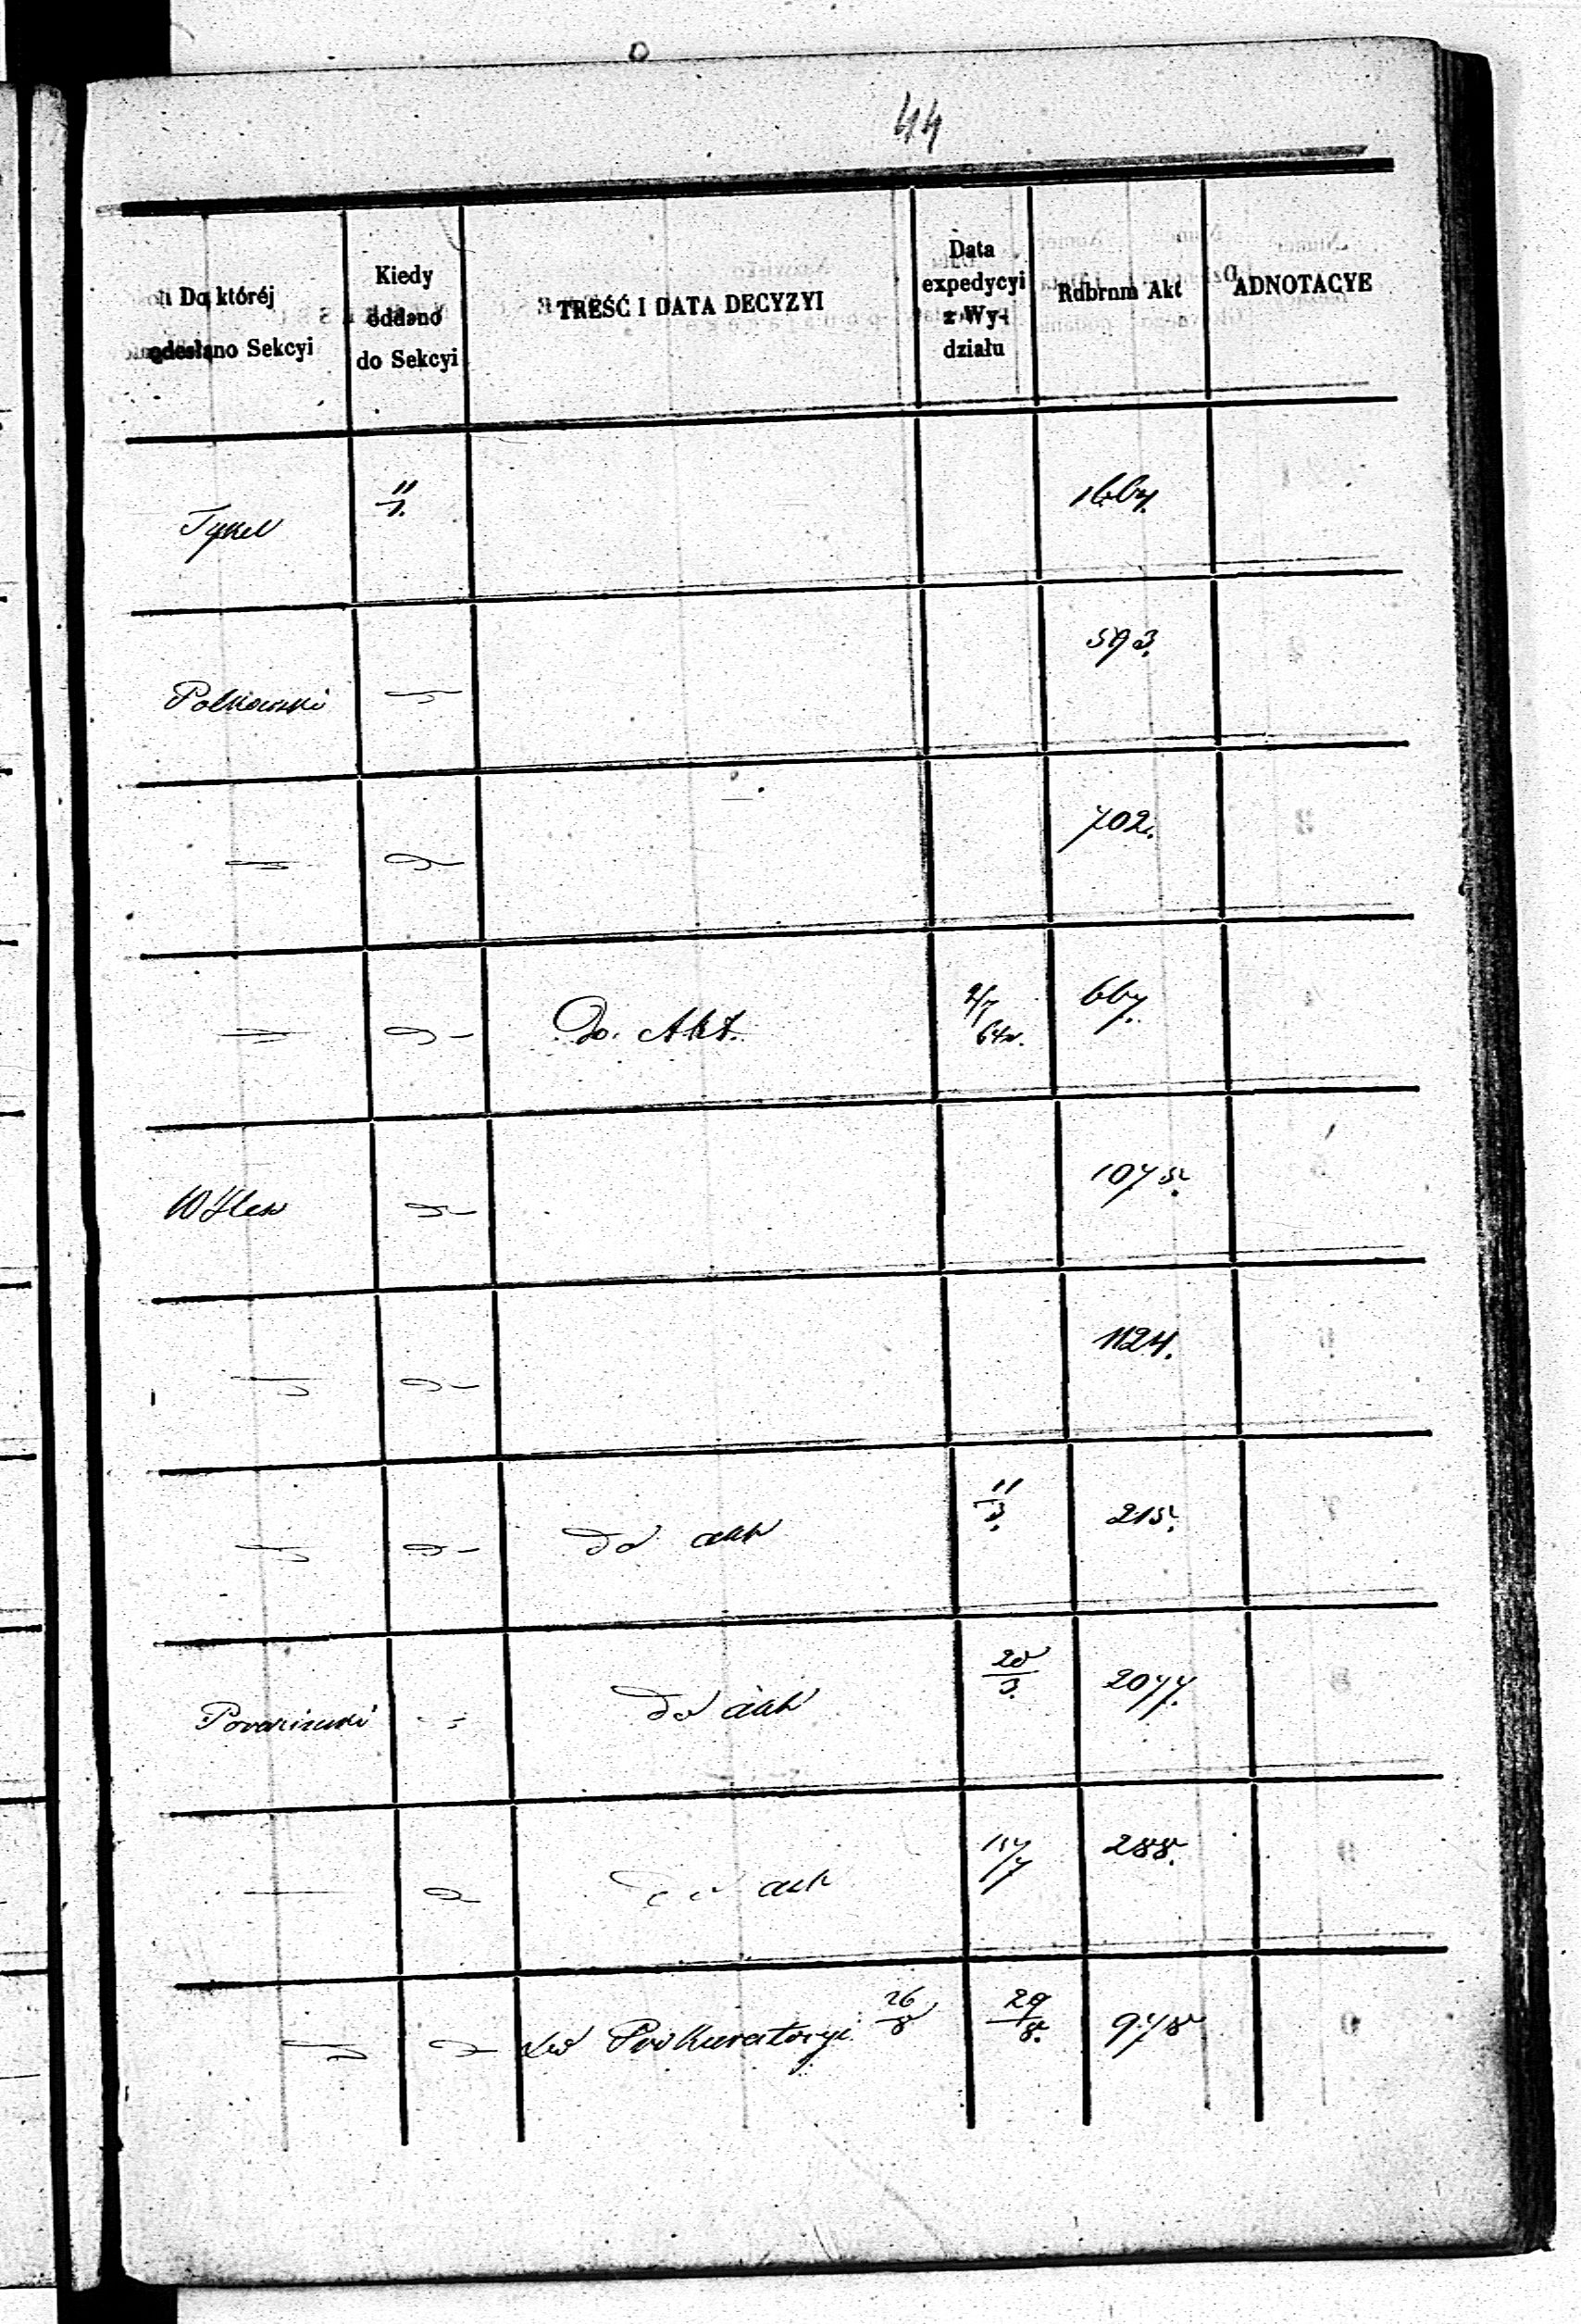 44
Do któréj odesłano Sekcyi
Kiedy oddano do Sekcyi
TREŚĆ I DATA DECYZYI
Data expedycyi z Wydziału
Rdbrum Akt
ADNOTACYE
Tykel 11/1.
593.
Polkowski
702.
Do Akt. 2/7 64r. 667.
1075.
1124.
do akt 11/3. 215.
do akt 20/3. 2077.
do akt 15/7 288.
do Prokuratoryi 26/8 29/8. 978